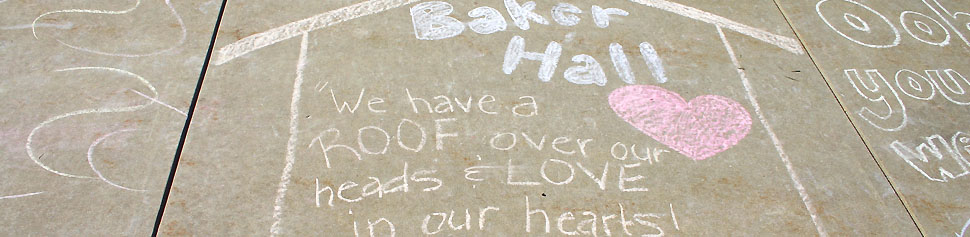 Baker
Hall
"We have a
ROOF over our
heads & LOVE
in our hearts!
you